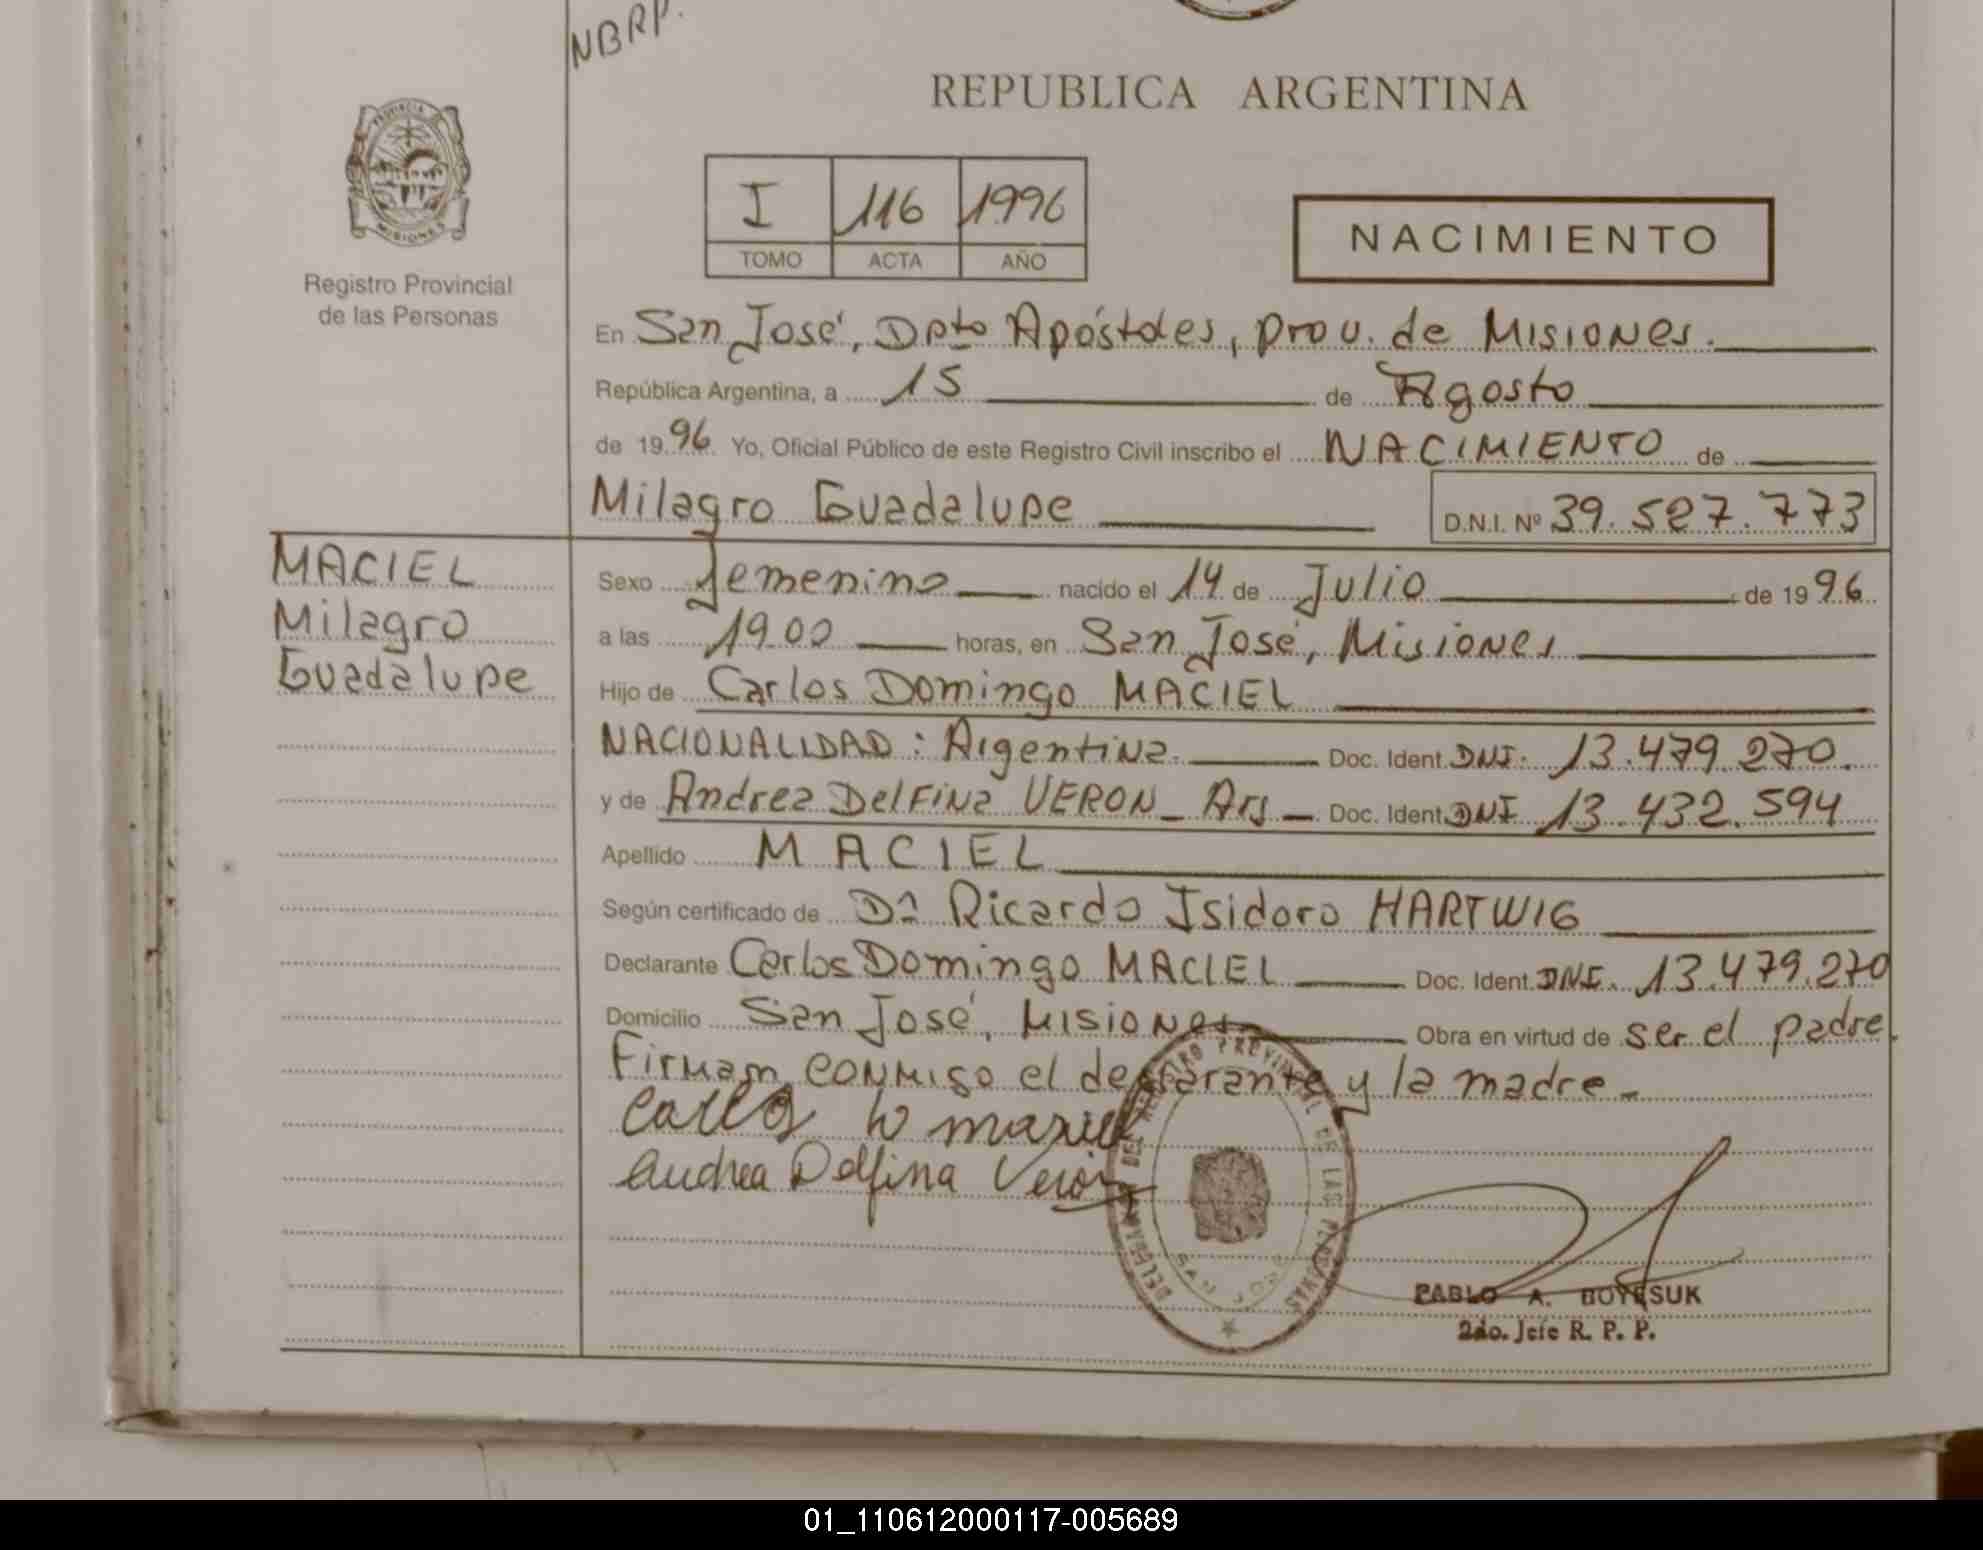 NBRP.
REPUBLICA ARGENTINA
PROVINCIA D
MISIONES
Registro Provincial
de las Personas
I 116 1996
TOMO ACTA AÑO
NACIMIENTO
En San José, Dpto Apóstoles, prov. de Misiones.
República Argentina, a 15 de Agosto
de 19 96 Yo, Oficial Público de este Registro Civil inscribo el NACIMIENTO de
Milagro Guadalupe D.N.I. Nº 39.527.773
MACIEL
Milagro
Guadalupe
Sexo femenino nacido el 14 de Julio de 19 96
a las 19.00 horas, en San José, Misiones
Hijo de Carlos Domingo MACIEL
NACIONALIDAD: Argentina. Doc. Ident. DNI. 13.479.270.
y de Andrea Delfina VERON - Arg - Doc. Ident. DNI 13.432.594
Apellido MACIEL
Según certificado de Dr Ricardo Isidoro HARTWIG
Declarante Carlos Domingo MACIEL Doc. Ident. DNI. 13.479.270
Domicilio San José, Misiones Obra en virtud de ser el padre.
Firman conmigo el declarante y la madre -
Carlos D maciel
Andrea Delfina Verón
DELEGACION DEL REGISTRO PROVINCIAL DE LAS PERSONAS
SAN JOSE
PABLO A. BOYESUK
2do. Jefe R. P. P.
01_110612000117-005689